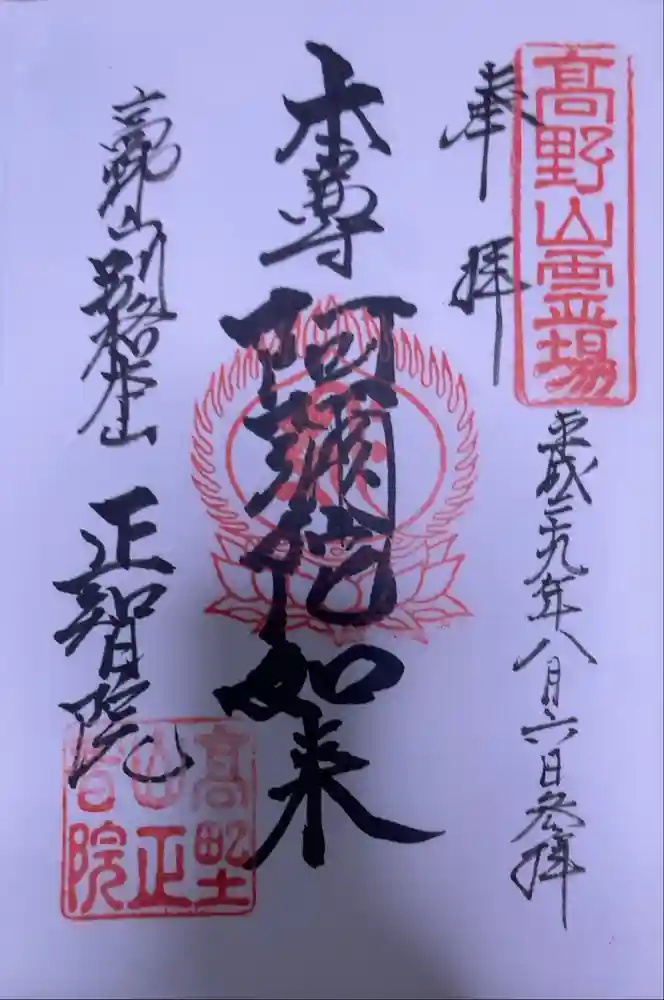 高野山霊場
奉拝
平成二十九年八月六日参拝
本尊 阿彌陀如来
高野山別格本山
正智院
高野
山正
智院